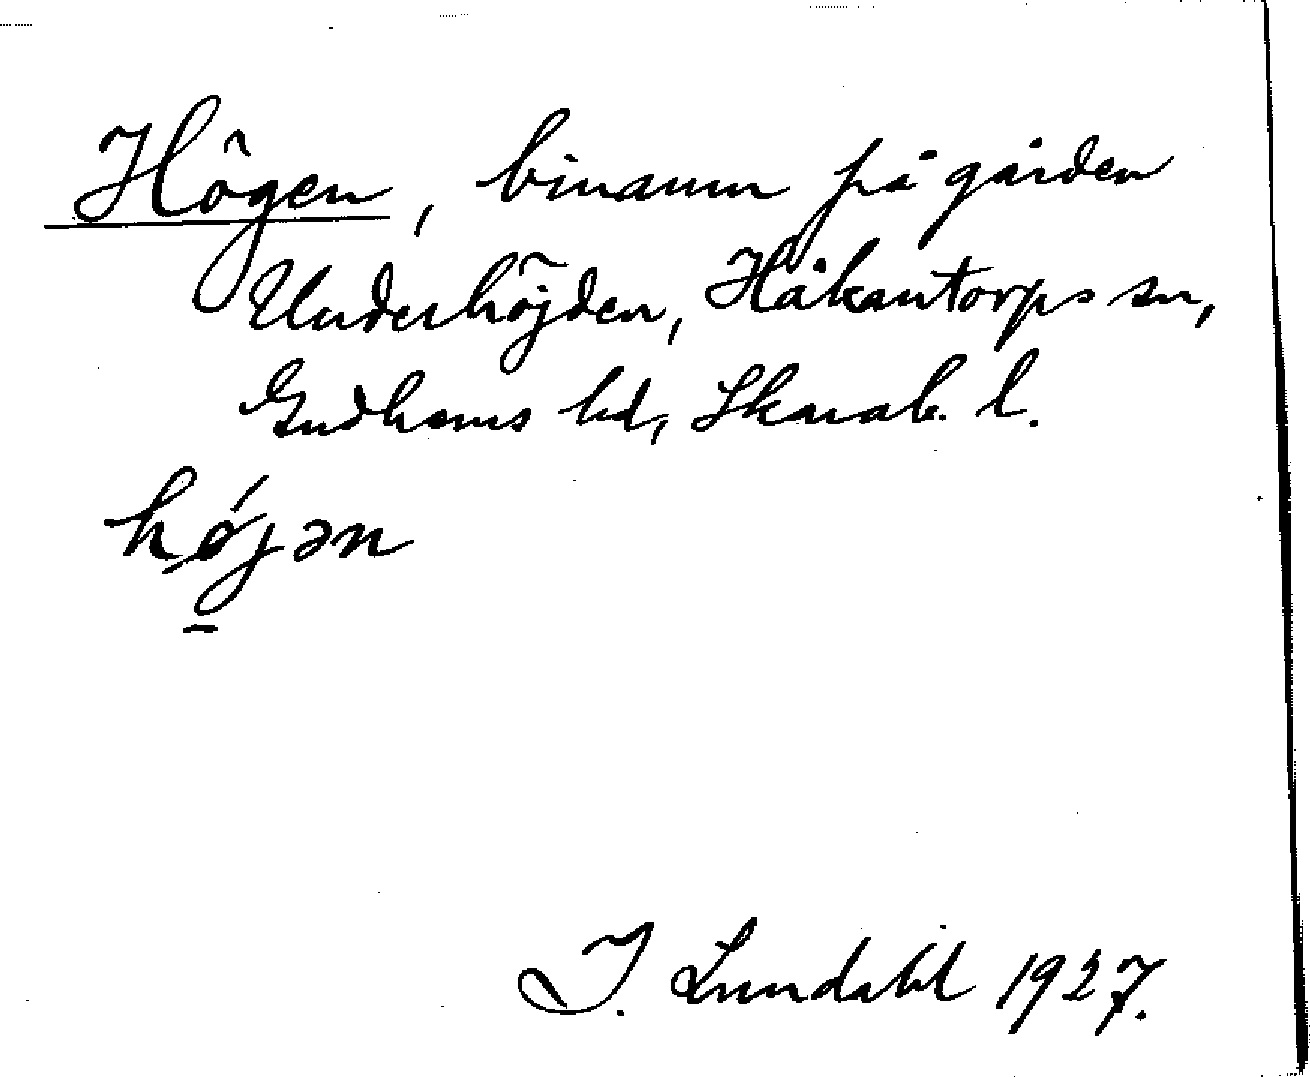 Högen, binamn på gården
Underhöjden, Håkantorps sn,
Gudhems hd, Skarab. l.
hø̀jən
I. Lundahl 1927.